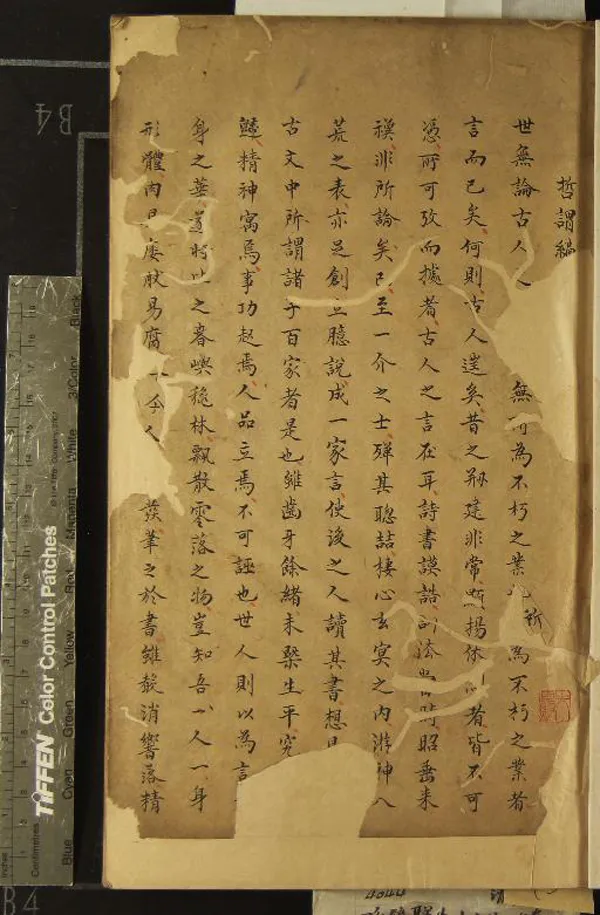 哲謂編
世無論古人人無可為不朽之業所為不朽之業者
言而已矣何則古人遠矣昔之剏建非常顯揚休者皆不可
憑所可攷而據者古人之言在耳詩書謨誥時昭垂来
禩非所論矣即至一介之士殫其聰喆棲心玄冥之内游神八
荒之表亦足創立臆說成一家言使後之人讀其書想
古文中所謂諸子百家者是也雖齒牙餘緒未槩生平究
竟精神寓焉事功起焉人品立焉不可誣也世人則以為言
身之華直將比之春嶼穠林飄散零落之物豈知吾人一身
形體肉易腐人發筆之於書雖聲消響落精
B4
B4
TIFFEN Color Control Patches
Blue Cyan Green Yellow Red Magenta White 3/Color Black
Inches
Centimetres